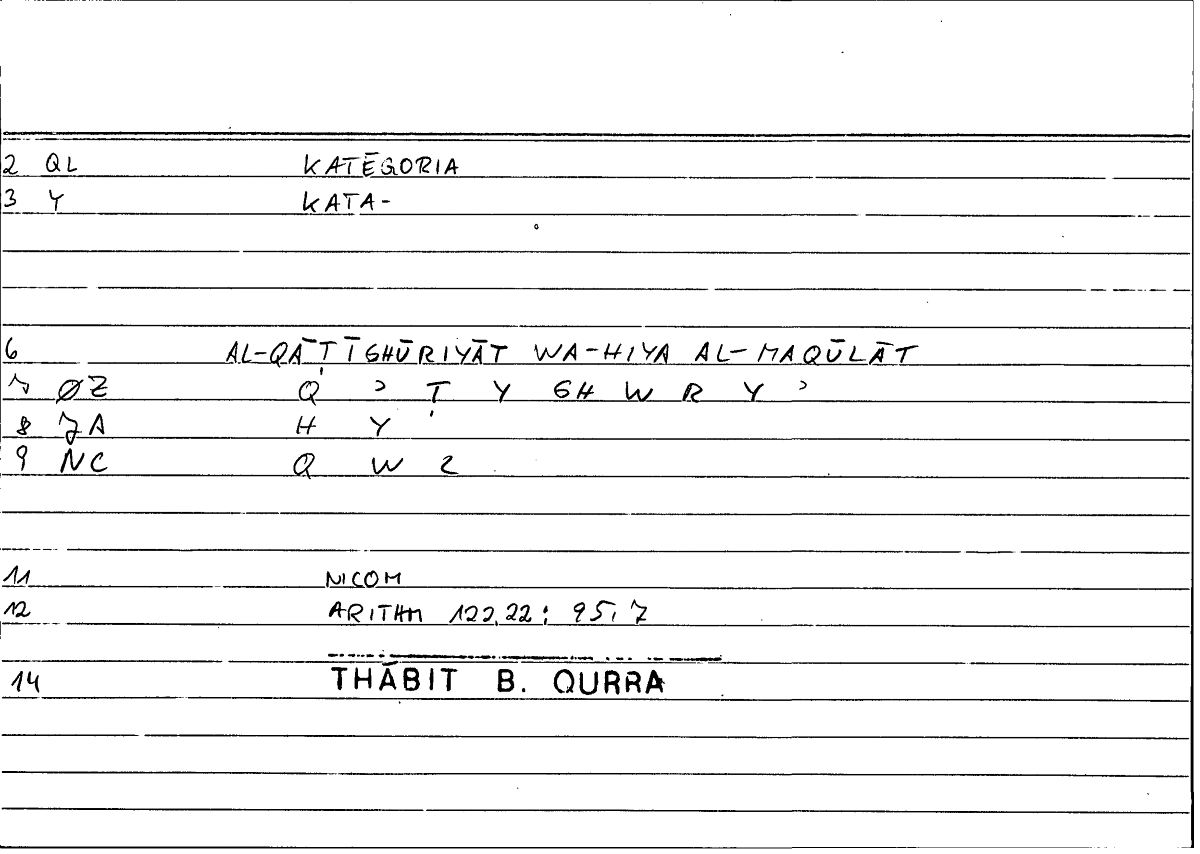 2 QL KATĒGORIA
3 Y KATA-
6 AL-QĀṬĪGHŪRIYĀT WA-HIYA AL-MAQŪLĀT
7 ØZ Q ʾ Ṭ Y GH W R Y ʾ
8 JA H Y
9 NC Q W 2
11 NICOM
12 ARITHM 122,22: 95,7
14 THĀBIT B. QURRA